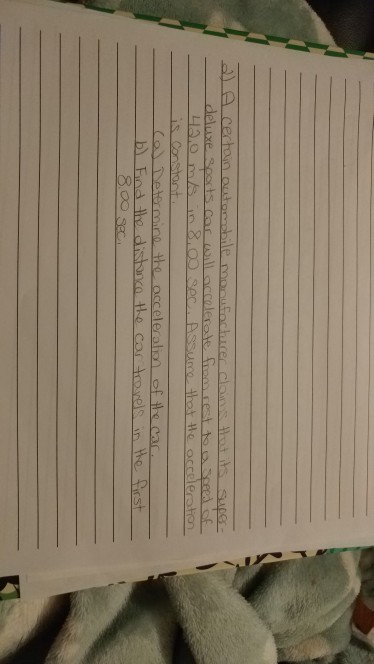 d) A certain automobile manufacturer claims that its super-
deluxe sports car will accelerate from rest to a speed of
42.0 m/s in 8.00 sec. Assume that the acceleration
is constant.
(a) Determine the acceleration of the car.
b) Find the distance the car travels in the first
8.00 sec.